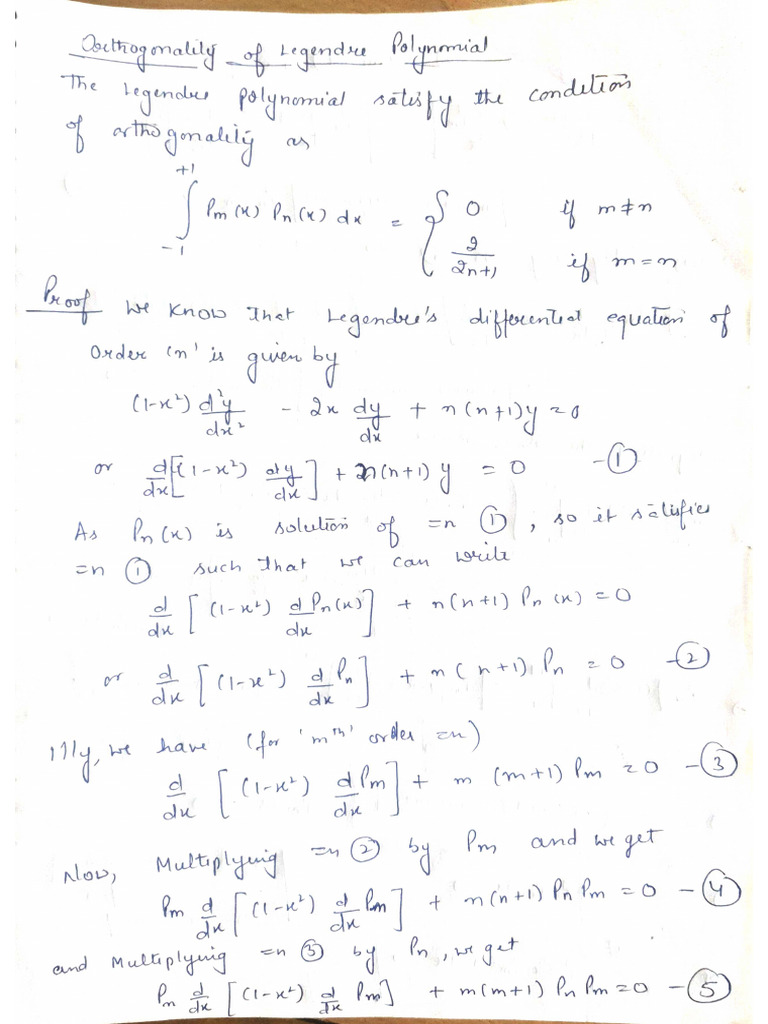 Orthogonality of Legendre Polynomial
The Legendre polynomial satisfy the condition
of orthogonality as
∫₋₁⁺¹ Pm(x) Pn(x) dx = { 0 if m≠n
2/(2n+1) if m=n
Proof We know that Legendre's differential equation of
Order 'n' is given by
(1-x²) d²y/dx² - 2x dy/dx + n(n+1)y = 0
or d/dx[(1-x²) dy/dx] + n(n+1) y = 0 -①
As Pn(x) is solution of =n ①, so it satisfies
=n ① such that we can write
d/dx [(1-x²) d Pn(x)/dx] + n(n+1) Pn(x) = 0
or d/dx [(1-x²) d/dx Pn] + n(n+1) Pn = 0 -②
Illy, we have (for 'mᵗʰ' order =n)
d/dx [(1-x²) d Pm/dx] + m(m+1) Pm = 0 -③
Now, Multiplying =n ② by Pm and we get
Pm d/dx [(1-x²) d/dx Pm] + n(n+1) Pn Pm = 0 -④
and Multiplying =n ③ by Pn, we get
Pm d/dx [(1-x²) d/dx Pm] + m(m+1) Pn Pm = 0 -⑤